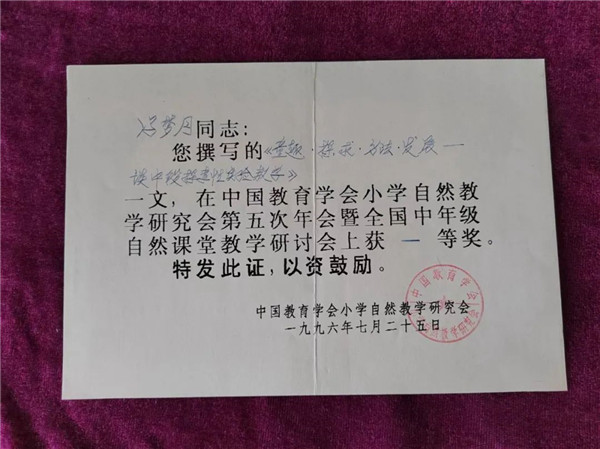 冯梦月同志：
您撰写的《童趣·探求·方法·发展—
谈中段探索性实验教学》
一文，在中国教育学会小学自然教
学研究会第五次年会暨全国中年级
自然课堂教学研讨会上获 一 等奖。
特发此证，以资鼓励。
中国教育学会小学自然教学研究会
一九九六年七月二十五日
中国教育学会